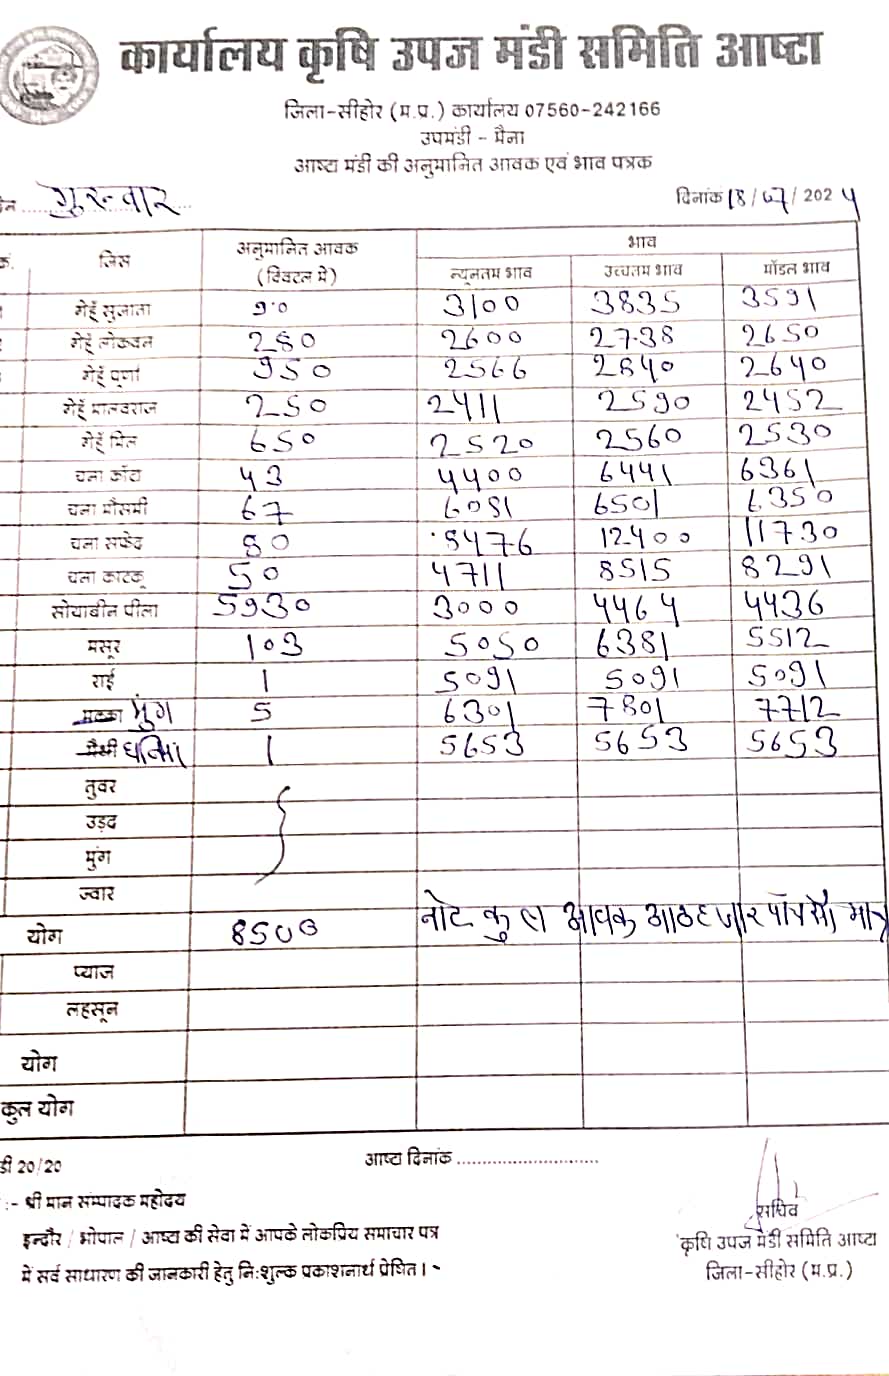 कार्यालय कृषि उपज मंडी समिति आष्टा
जिला-सीहोर (म.प्र.) कार्यालय 07560-242166
उपमंडी - मैना
आष्टा मंडी की अनुमानित आवक एवं भाव पत्रक
गुरूवार दिनांक 18/07/2024
जिस अनुमानित आवक (क्विटल में) भाव
न्यूनतम भाव उच्चतम भाव मॉडल भाव
गेहूँ सुजाता 90 3100 3835 3591
गेहूँ लोकवन 280 2600 2738 2650
गेहूँ पूर्णा 950 2566 2840 2640
गेहूँ मालवराज 250 2411 2590 2452
गेहूँ मिल 650 2520 2560 2530
चना कॉटा 43 4400 6441 6361
चना मौसमी 67 6081 6501 6350
चना सफेद 80 8476 12400 11730
चना काटकू 50 4711 8515 8291
सोयाबीन पीला 5930 3000 4464 4436
मसूर 103 5050 6381 5512
राई 1 5091 5091 5091
मक्का मुंग 5 6301 7801 7712
मैथी धनिया 1 5653 5653 5653
तुवर
उड़द
मुंग
ज्वार
योग 8500 नोट कुल आवक आठ हजार पाँचसौ मात्र
प्याज
लहसून
योग
कुल योग
डी 20/20 आष्टा दिनांक ............................
:- श्री मान सम्पादक महोदय
सचिव
इन्दौर / भोपाल / आष्टा की सेवा में आपके लोकप्रिय समाचार पत्र
कृषि उपज मंडी समिति आष्टा
में सर्व साधारण की जानकारी हेतु नि:शुल्क प्रकाशनार्थ प्रेषित। -
जिला-सीहोर (म.प्र.)